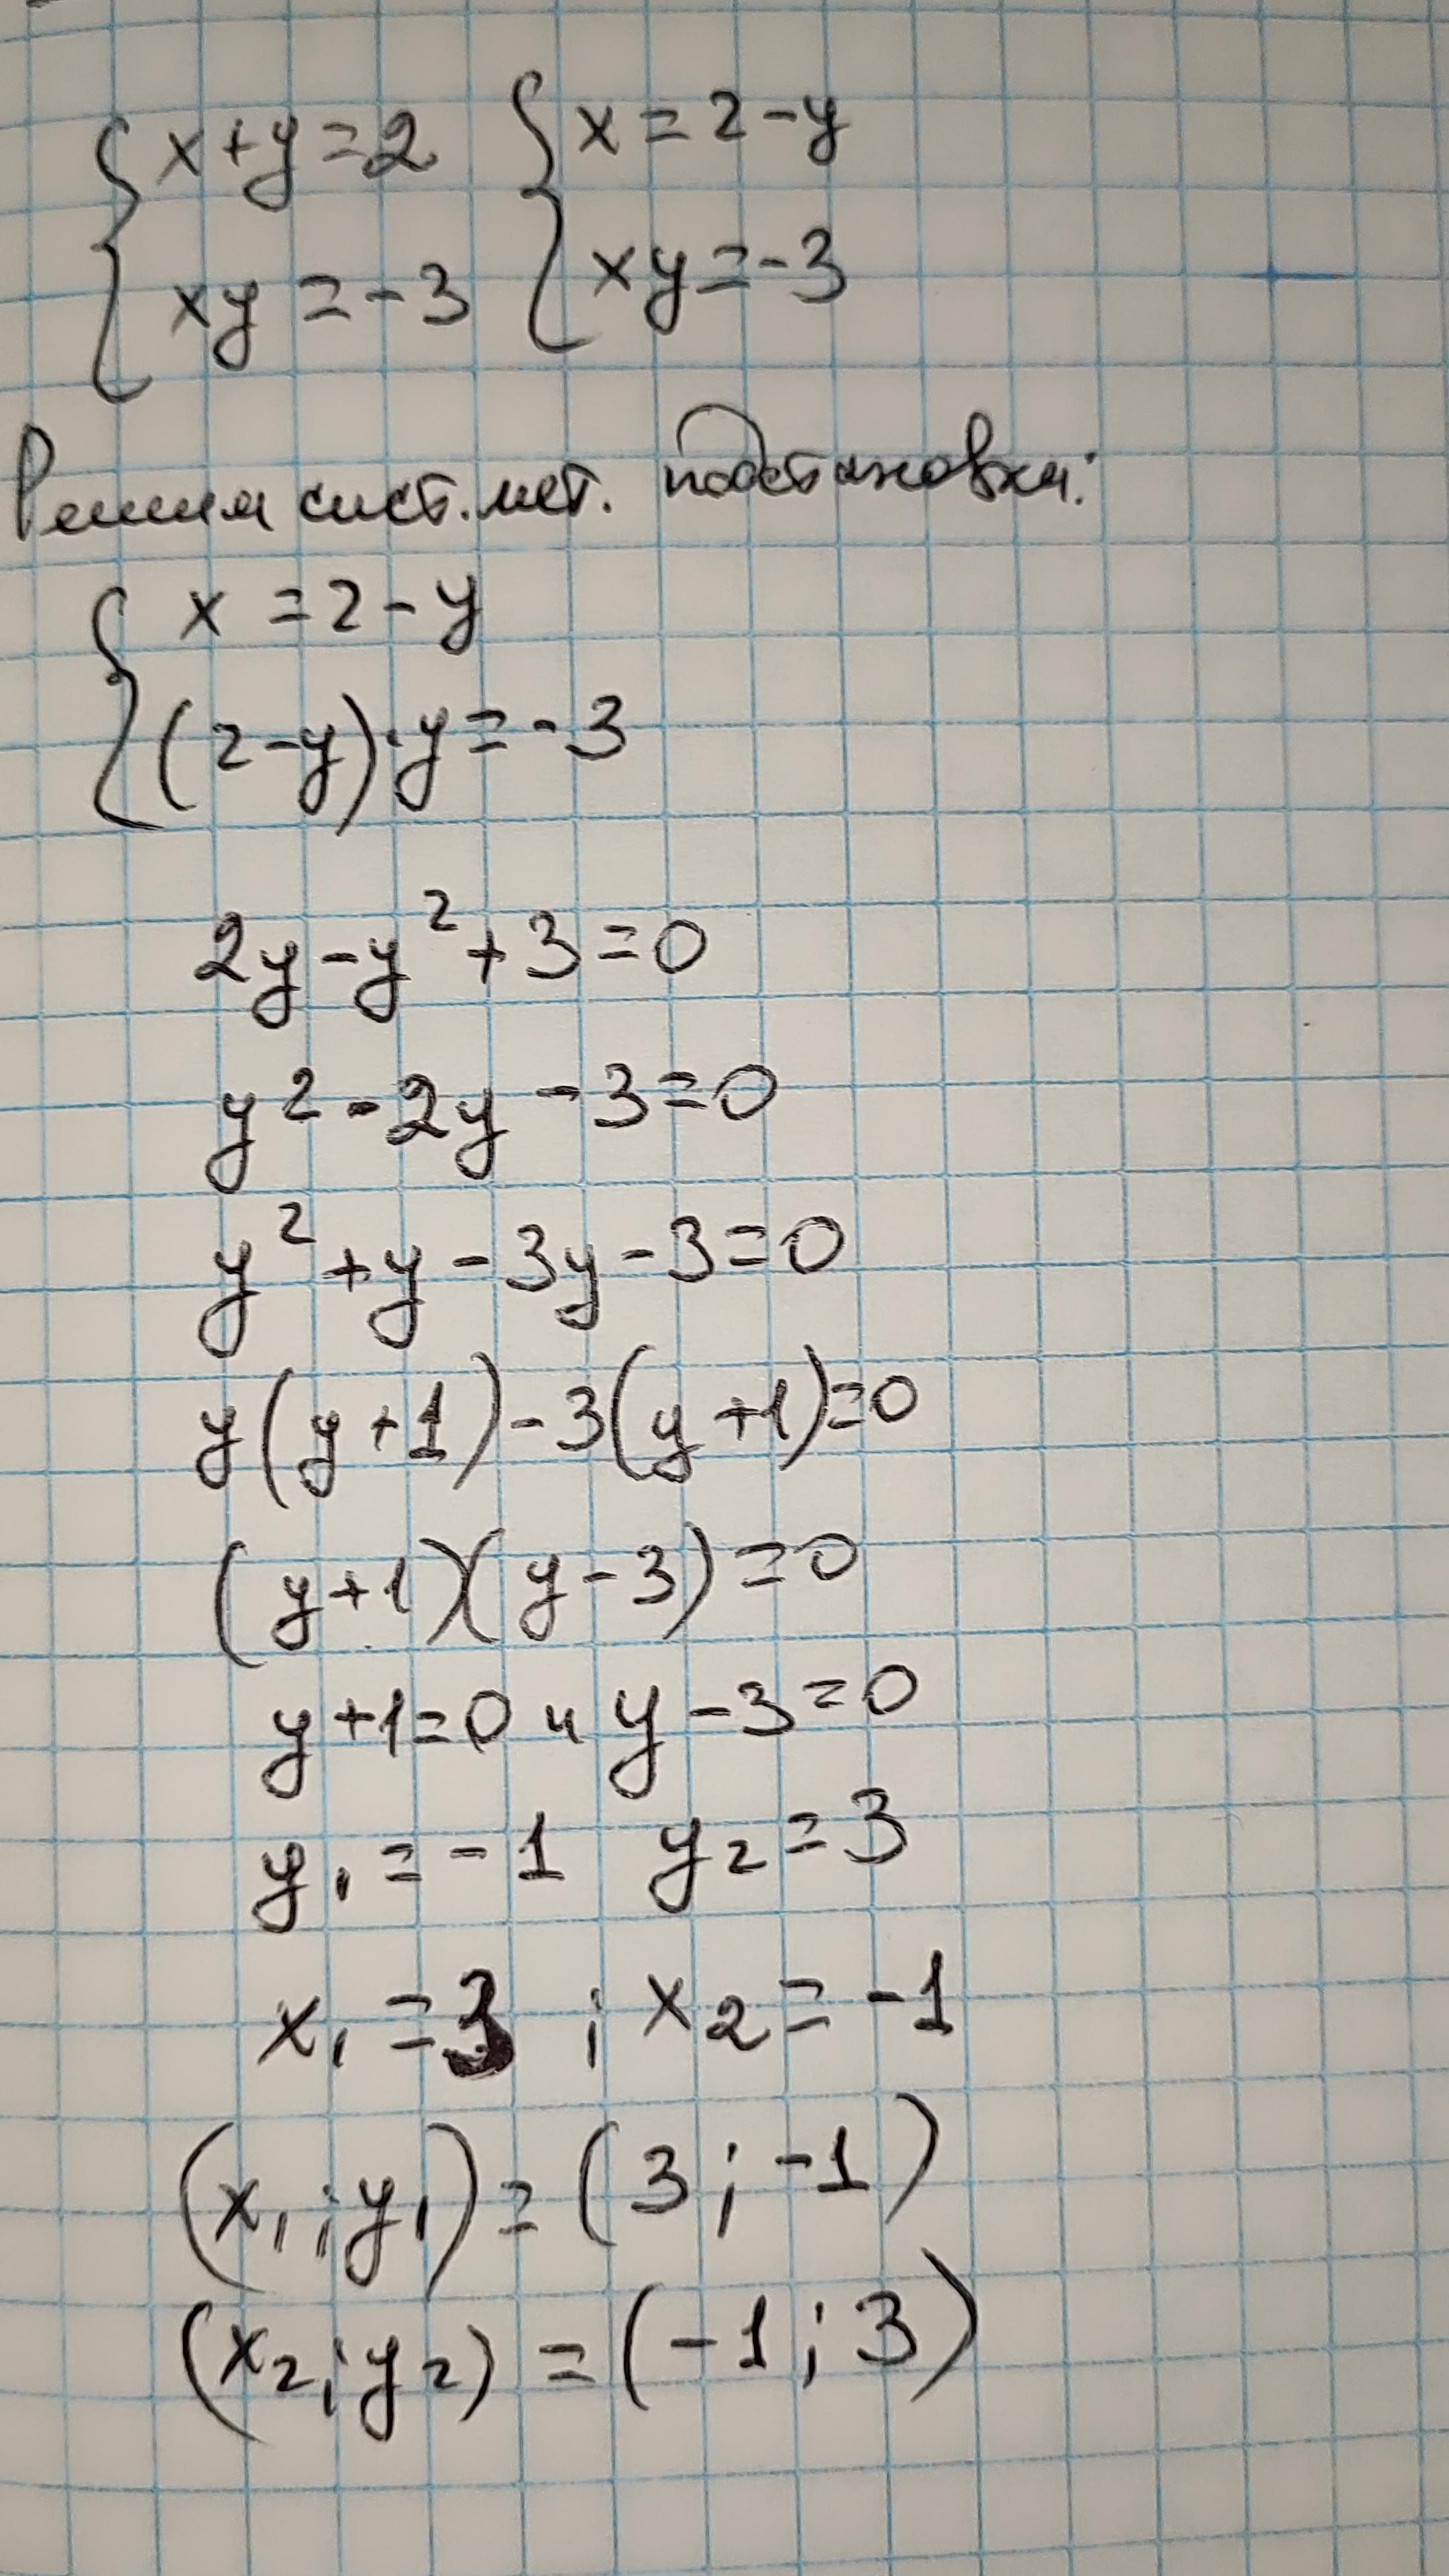 { x+y=2 { x=2-y
{ xy=-3 { xy=-3
Решим сист. мет. подстановки:
{ x=2-y
{ (2-y)·y=-3
2y-y²+3=0
y²-2y-3=0
y²+y-3y-3=0
y(y+1)-3(y+1)=0
(y+1)(y-3)=0
y+1=0 и y-3=0
y₁=-1 y₂=3
x₁=3 ; x₂=-1
(x₁;y₁)=(3;-1)
(x₂;y₂)=(-1;3)